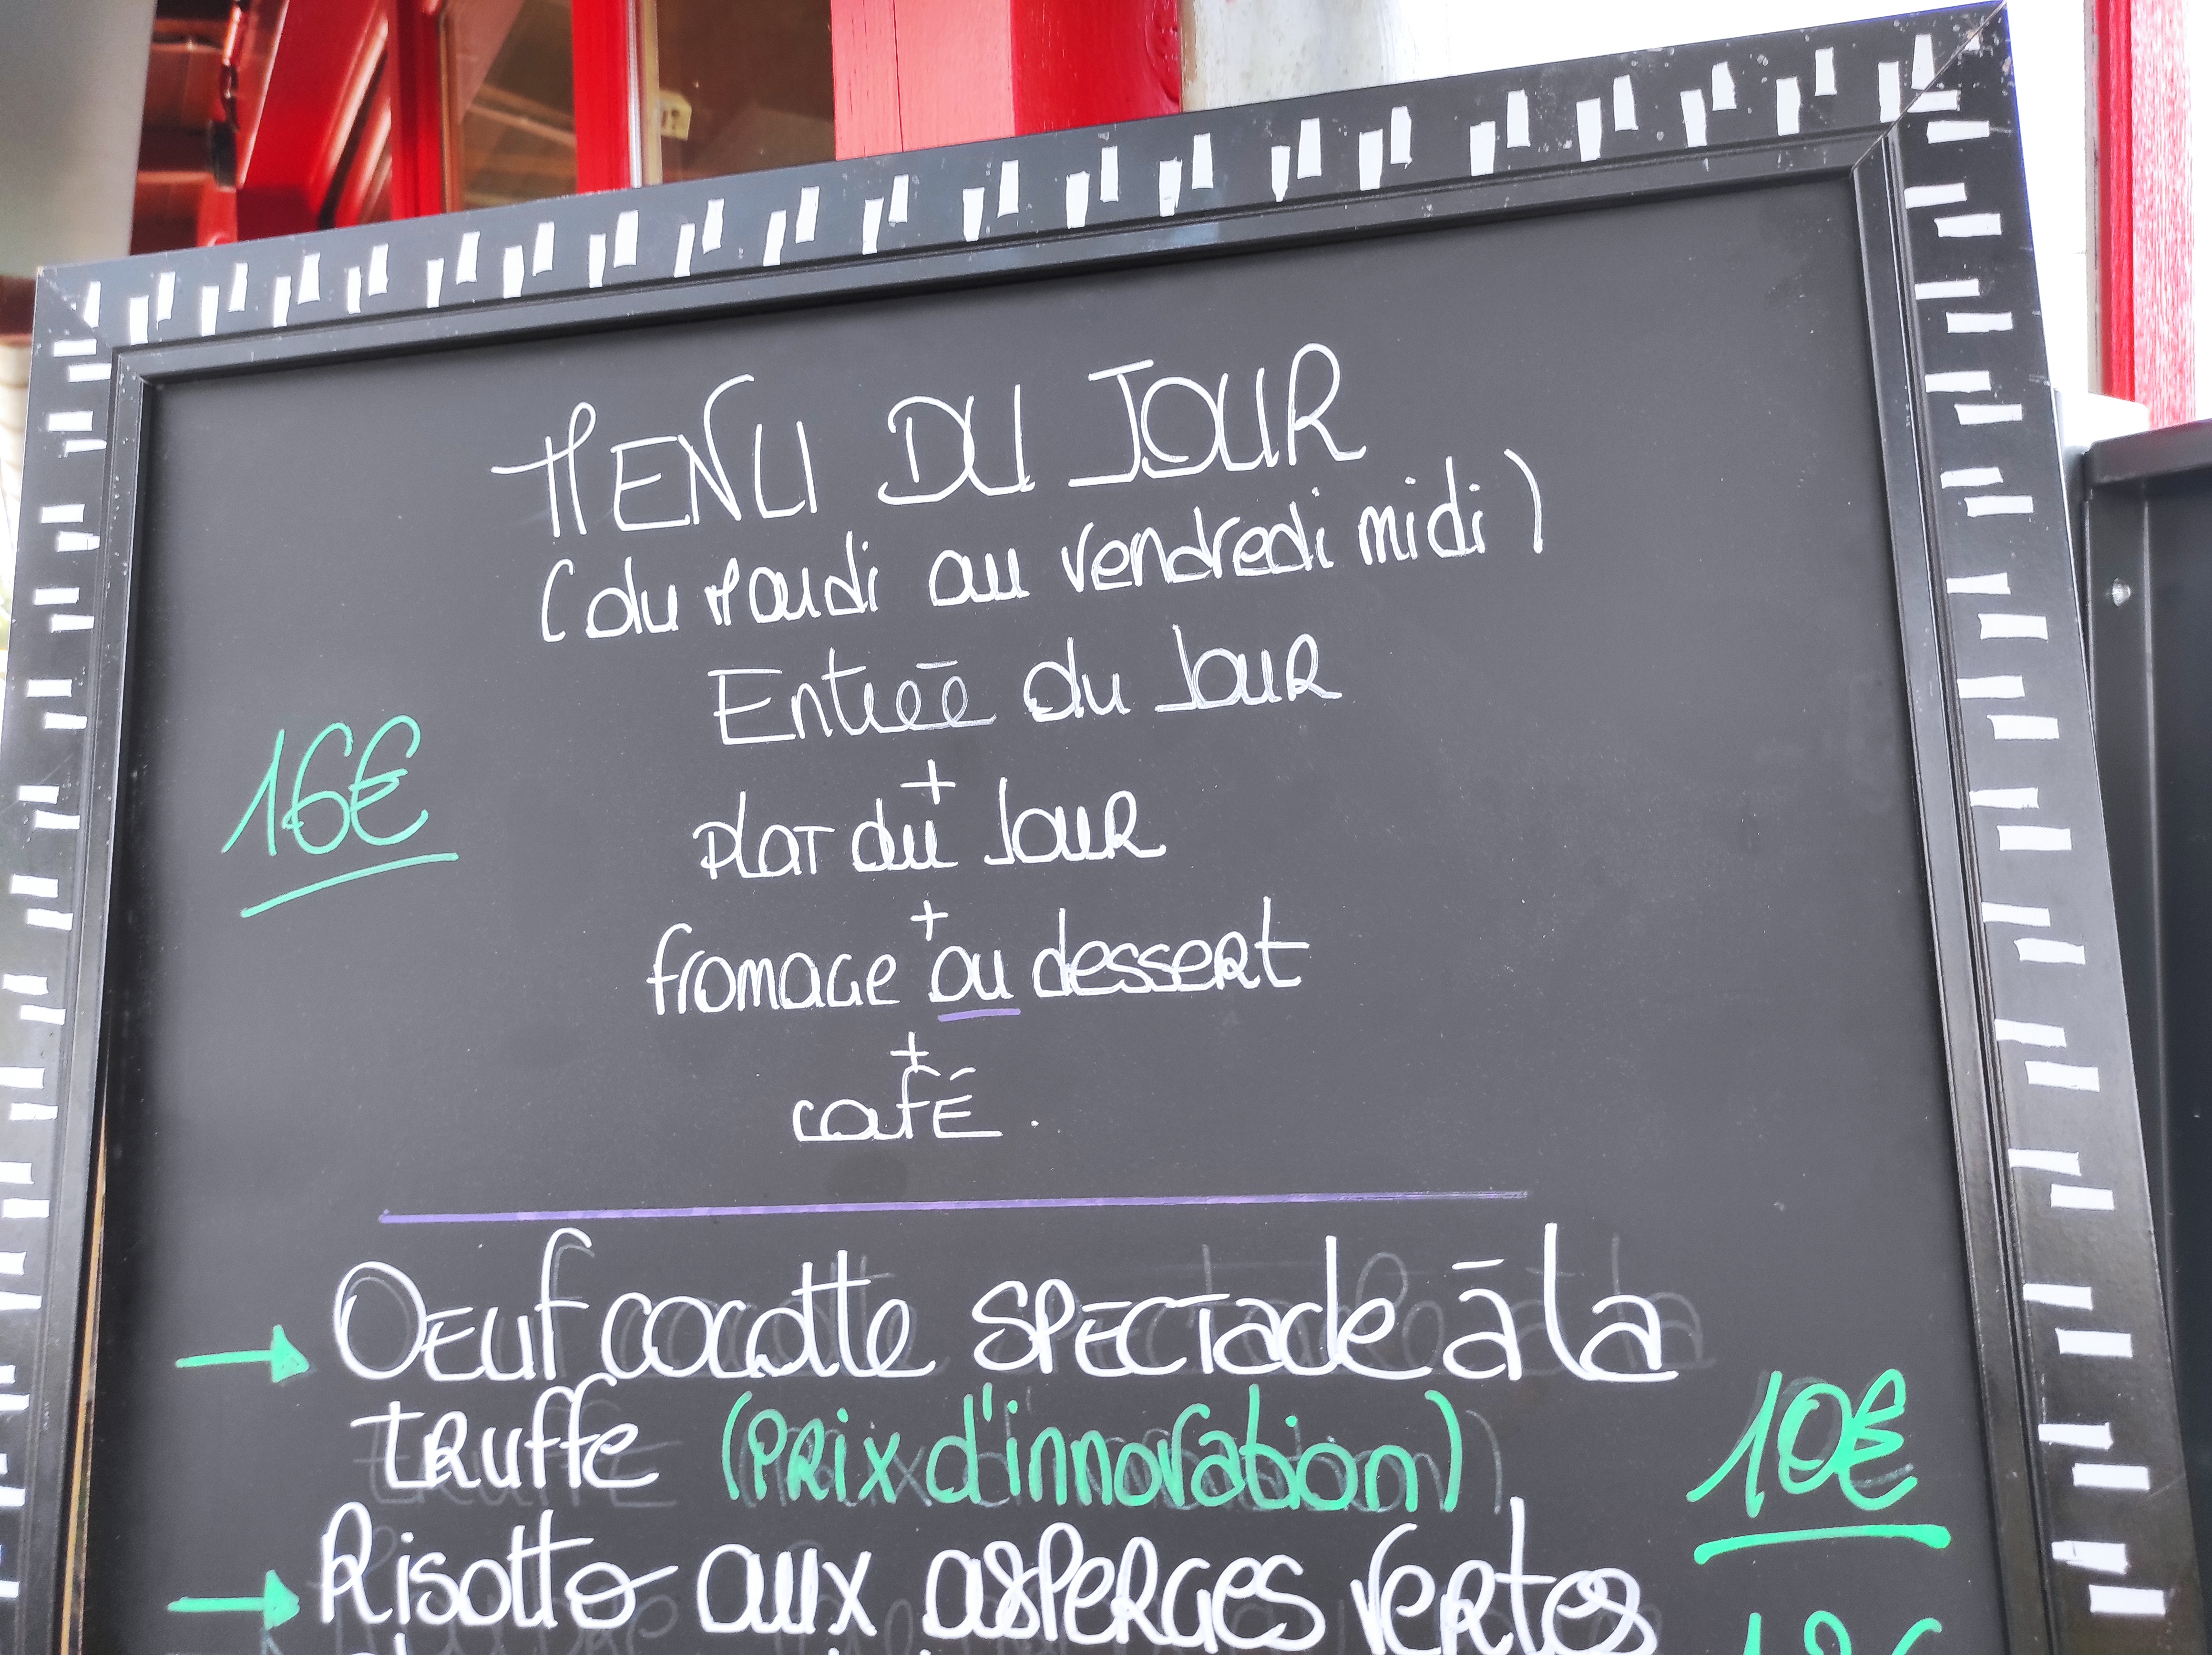 MENU DU JOUR
(du Mardi au vendredi midi)
Entrée du Jour
+
16€
plat du Jour
+
fromage ou dessert
+
café.
Oeuf cocotte spectacle à la
truffe (prix d'innovation)
10€
Risotto aux asperges vertes